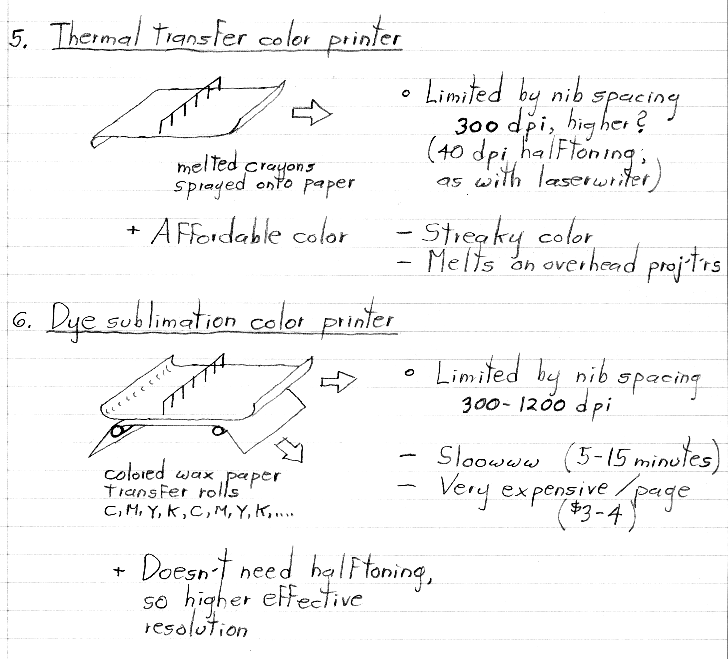 5. Thermal transfer color printer
melted crayons
sprayed onto paper
• Limited by nib spacing
300 dpi, higher?
(40 dpi halftoning,
as with laserwriter)
+ Affordable color
− Streaky color
− Melts on overhead proj't'rs
6. Dye sublimation color printer
colored wax paper
transfer rolls
C, M, Y, K, C, M, Y, K, ....
• Limited by nib spacing
300-1200 dpi
− Sloowww (5-15 minutes)
− Very expensive/page
($3-4)
+ Doesn't need halftoning,
so higher effective
resolution